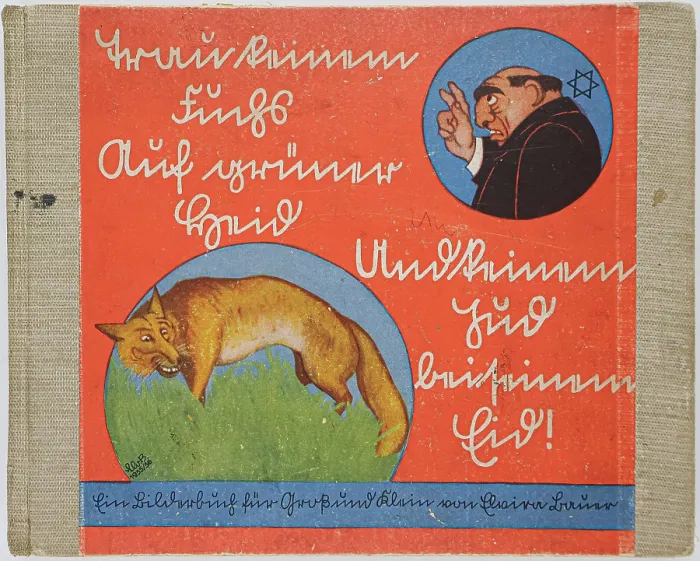 Trau keinem
Fuchs
Auf grüner
Heid
Und keinem
Jud
bei seinem
Eid!
1935/36
Ein Bilderbuch für Groß und Klein von Elvira Bauer